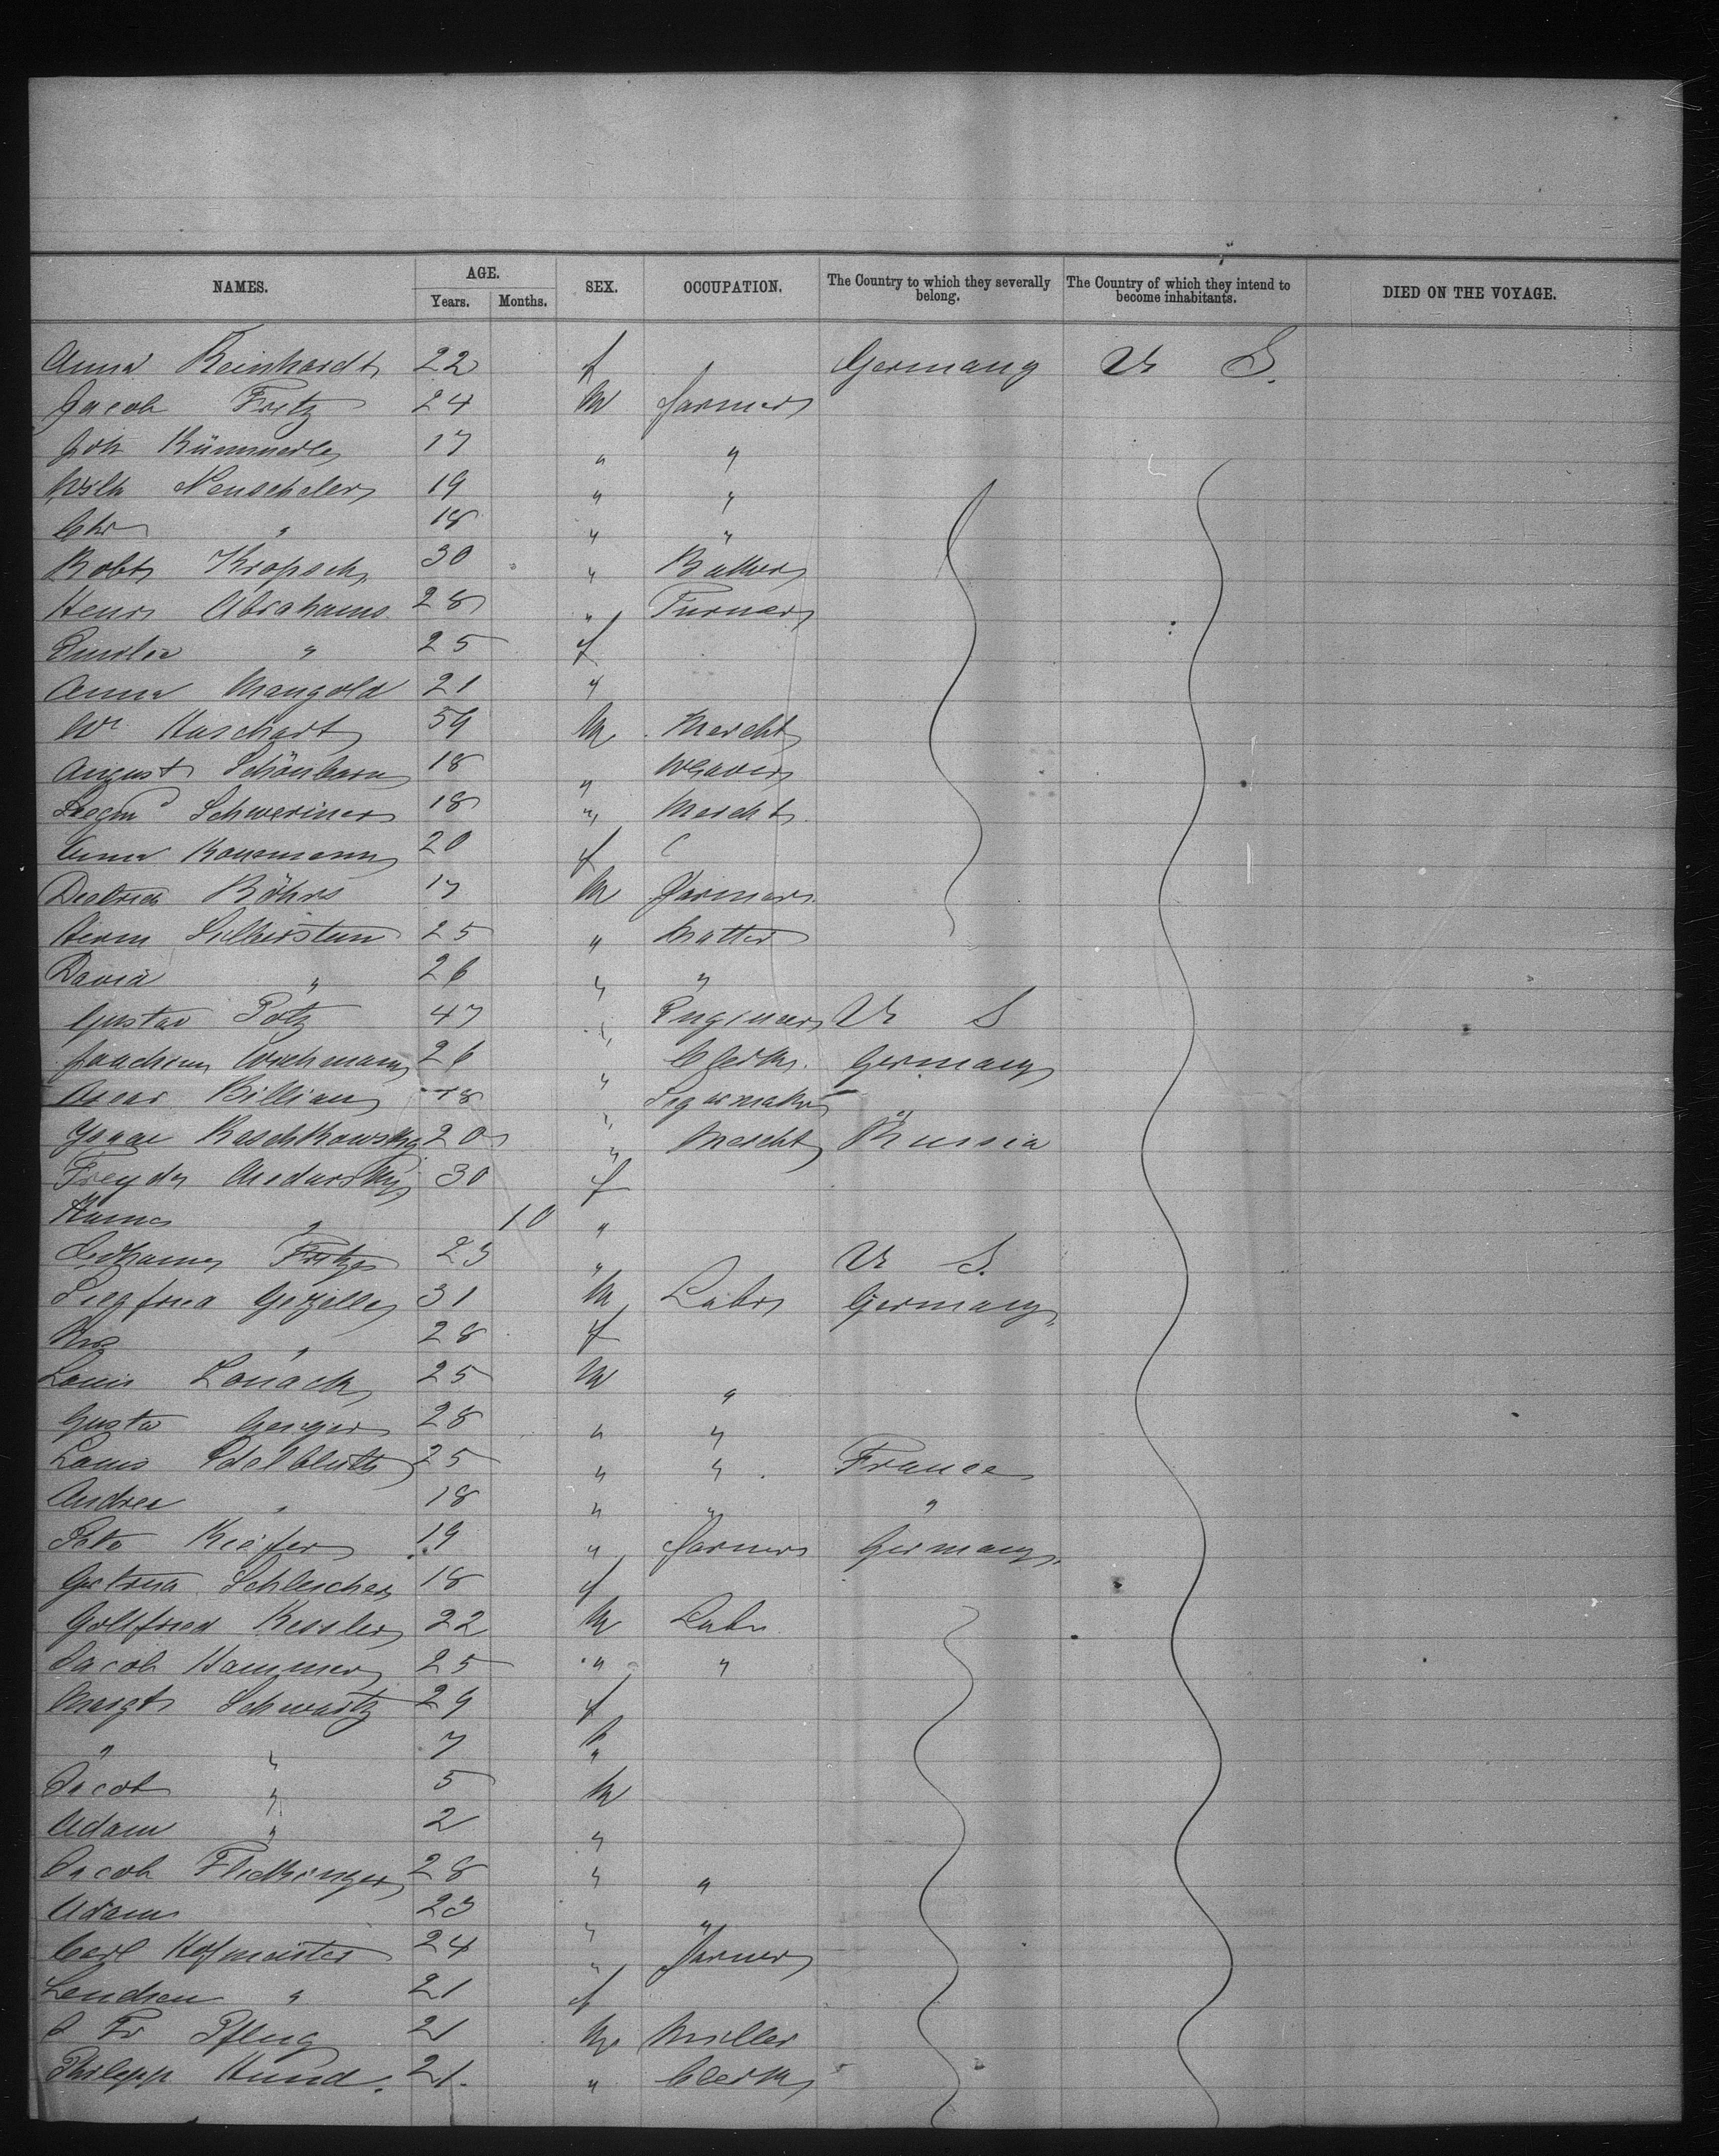 NAMES. AGE. SEX. OCCUPATION. The Country to which they severally belong. The Country of which they intend to become inhabitants. DIED ON THE VOYAGE.
Years. Months.
Anna Reinhardt 22 f Germany U S.
Jacob Fritz 24 M farmer
Joh Kümmerle 17 " "
Wilh Neuscheler 19 " "
Chr " 18 " "
Robt Kropsch 30 " Baker
Henry Abrahams 28 " Turner
Emilia " 25 f
Anna Mangold 21 "
Wm 59 M Mercht
August Schönborn 18 " Weaver
Schweriner 18 " Mercht
Anna 20 f
Dietrich Röhrs 17 M farmer
Herm Silberstein 25 "
David " 26 " "
Gustav Potz 47 " Engineer U S
26 " Clerk Germany
Oscar Billian 18 " Segarmaker "
20 " Mercht Russia
30 f
" 10 "
Fritze 23 " U S.
Siegfried 31 M Labr Germany
Mrs " 28 f
Louis 25 M "
Gustav 28 " "
Louis Edelbluth 25 " " France
Andrea " 18 " " "
Peter Kiefer 19 " farmer Germany
Schleicher 18 f
Gottfried Kessler 22 M Labr
Jacob Hammer 25 " "
Margt Schwartz 29 f
" " 7 "
Jacob " 5 M
Adam " 2 "
Jacob 28 " "
Adam 23 " "
Carl Hofmeister 24 " farmer
" 21 f
Fr Pflug 21 M Miller
Philipp Hund. 21. " Clerk